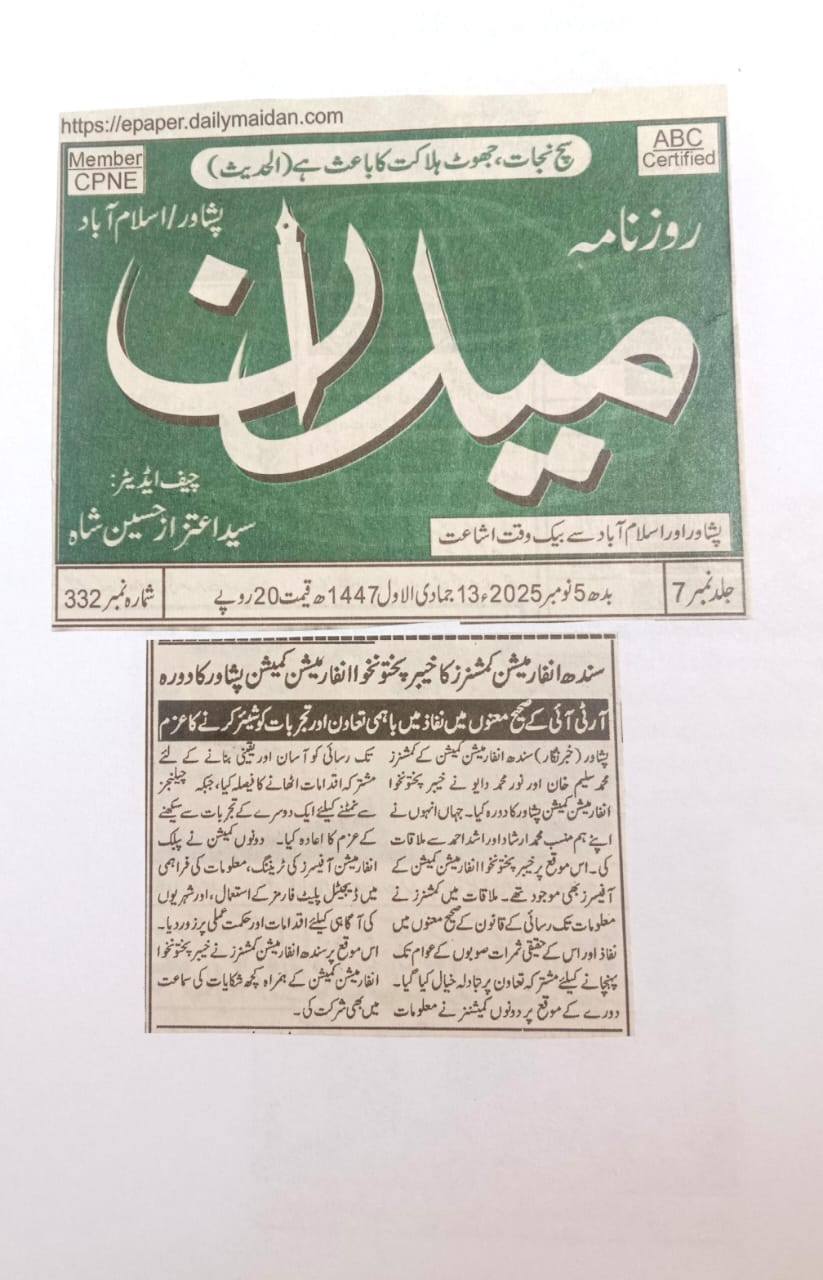 https://epaper.dailymaidan.com
Member
CPNE
سچ نجات، جھوٹ ہلاکت کا باعث ہے (الحدیث)
ABC
Certified
روزنامہ
پشاور/اسلام آباد
میدان
چیف ایڈیٹر:
سید اعتزاز حسین شاہ
پشاور اور اسلام آباد سے بیک وقت اشاعت
جلد نمبر 7
بدھ 5 نومبر 2025ء 13 جمادی الاول 1447ھ قیمت 20 روپے
شمارہ نمبر 332
سندھ انفارمیشن کمشنرز کا خیبر پختونخوا انفارمیشن کمیشن پشاور کا دورہ
آر ٹی آئی کے صحیح معنوں میں نفاذ میں باہمی تعاون اور تجربات کو شیئر کرنے کا عزم
پشاور (خبرنگار) سندھ انفارمیشن کمیشن کے کمشنرز
محمد سلیم خان اور نور محمد دایو نے خیبر پختونخوا
انفارمیشن کمیشن پشاور کا دورہ کیا۔ جہاں انہوں نے
اپنے ہم منسب محمد ارشاد اور اشد احمد سے ملاقات
کی۔ اس موقع پر خیبر پختونخوا انفارمیشن کمیشن کے
آفیسرز بھی موجود تھے۔ ملاقات میں کمشنرز نے
معلومات تک رسائی کے قانون کے صحیح معنوں میں
نفاذ اور اس کے حقیقی ثمرات صوبوں کے عوام تک
پہنچانے کیلئے مشترکہ تعاون پر تبادلہ خیال کیا گیا۔
دورے کے موقع پر دونوں کمیشنز نے معلومات
تک رسائی کو آسان اور یقینی بنانے کے لئے
مشترکہ اقدامات اٹھانے کا فیصلہ کیا، جبکہ چیلنجز
سے نمٹنے کیلئے ایک دوسرے کے تجربات سے سیکھنے
کے عزم کا اعادہ کیا۔ دونوں کمیشن نے پبلک
انفارمیشن آفیسرز کی ٹریننگ، معلومات کی فراہمی
میں ڈیجیٹل پلیٹ فارمز کے استعمال، اور شہریوں
کی آگاہی کیلئے اقدامات اور حکمت عملی پر زور دیا۔
اس موقع پر سندھ انفارمیشن کمشنرز نے خیبر پختونخوا
انفارمیشن کمیشن کے ہمراہ کچھ شکایات کی سماعت
میں بھی شرکت کی۔